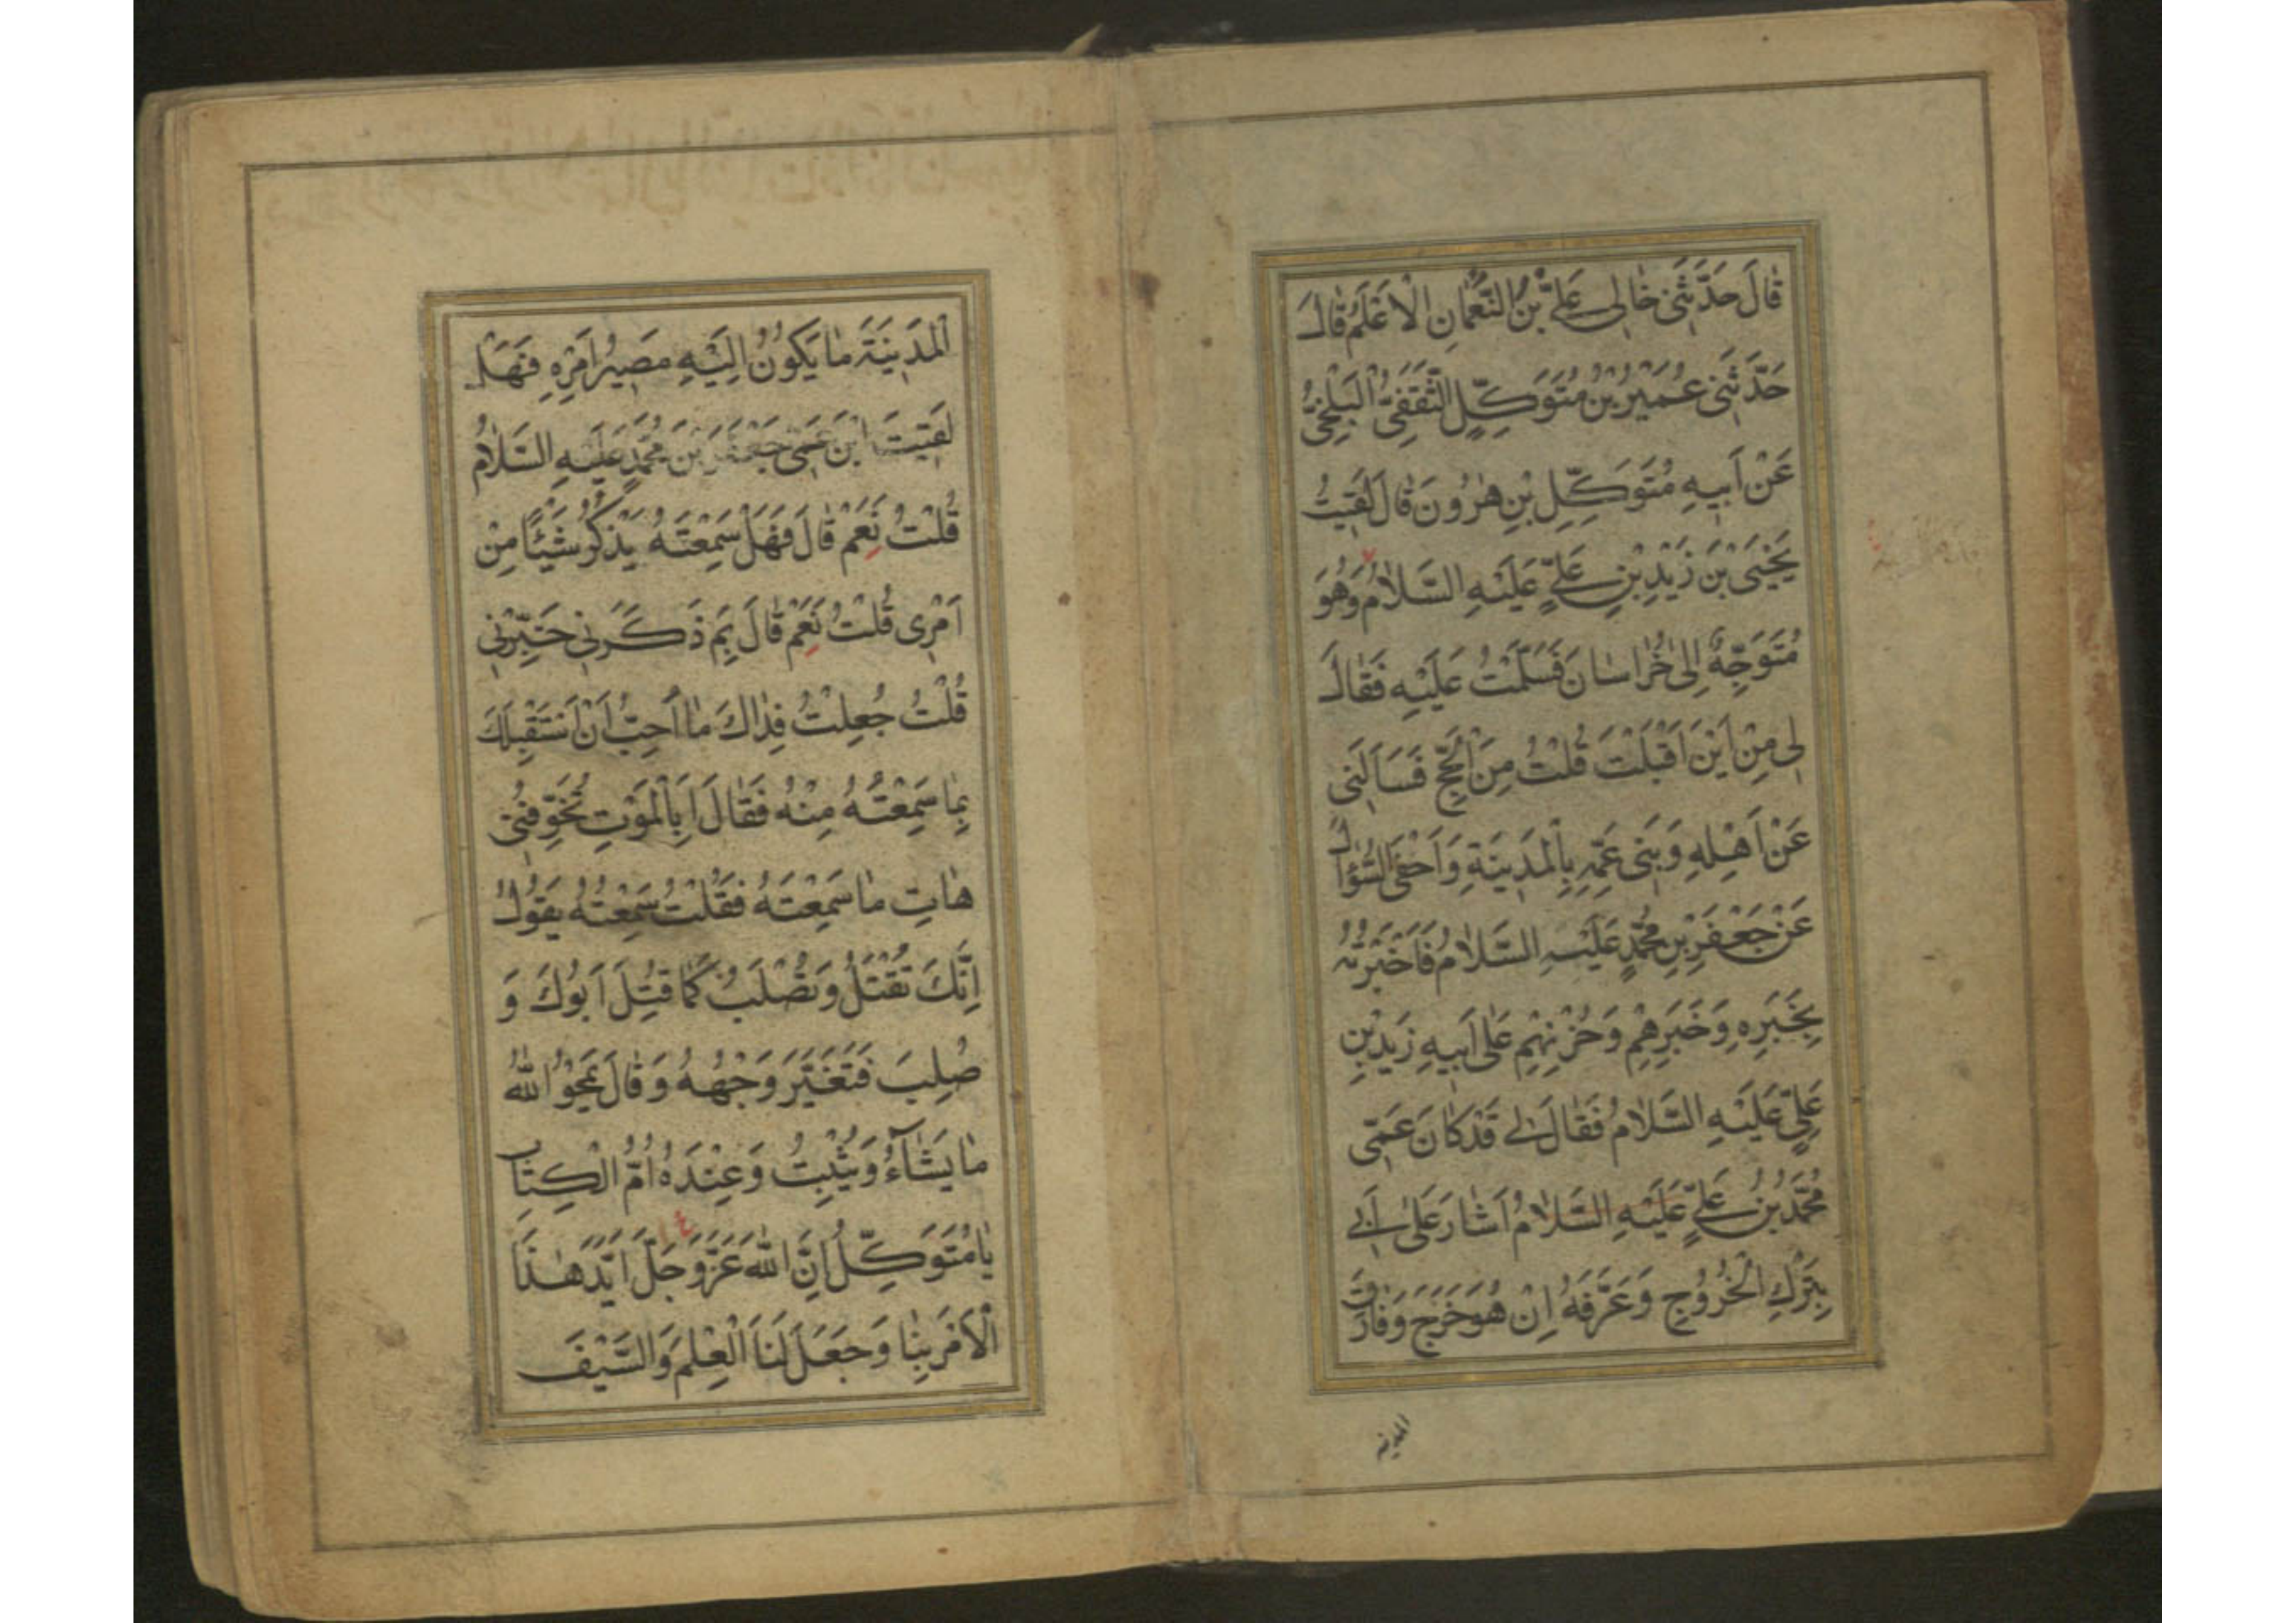 قَالَ حَدَّثَنِي خَالِي عَلِيُّ بْنُ النُّعْمَانِ الْأَعْلَمُ قَالَ
حَدَّثَنِي عُمَيْرُ بْنُ مُتَوَكِّلٍ الثَّقَفِيُّ الْبَلْخِيُّ
عَنْ أَبِيهِ مُتَوَكِّلِ بْنِ هٰرُونَ قَالَ لَقِيتُ
يَحْيَى بْنَ زَيْدِ بْنِ عَلِيٍّ عَلَيْهِ السَّلَامُ وَهُوَ
مُتَوَجِّهٌ إِلَى خُرَاسَانَ فَسَلَّمْتُ عَلَيْهِ فَقَالَ
لِي مِنْ أَيْنَ أَقْبَلْتَ قُلْتُ مِنَ الْحَجِّ فَسَأَلَنِي
عَنْ أَهْلِهِ وَبَنِي عَمِّهِ بِالْمَدِينَةِ وَأَحْفَى السُّؤَالَ
عَنْ جَعْفَرِ بْنِ مُحَمَّدٍ عَلَيْهِ السَّلَامُ فَأَخْبَرْتُهُ
بِخَبَرِهِ وَخَبَرِهِمْ وَحُزْنِهِمْ عَلَى أَبِيهِ زَيْدِ بْنِ
عَلِيٍّ عَلَيْهِ السَّلَامُ فَقَالَ لِي قَدْ كَانَ عَمِّي
مُحَمَّدُ بْنُ عَلِيٍّ عَلَيْهِ السَّلَامُ أَشَارَ عَلَى أَبِي
بِتَرْكِ الْخُرُوجِ وَعَرَّفَهُ إِنْ هُوَ خَرَجَ وَفَارَقَ
المدينة
الْمَدِينَةَ مَا يَكُونُ إِلَيْهِ مَصِيرُ أَمْرِهِ فَهَلْ
لَقِيتَ ابْنَ عَمِّي جَعْفَرَ بْنَ مُحَمَّدٍ عَلَيْهِ السَّلَامُ
قُلْتُ نَعَمْ قَالَ فَهَلْ سَمِعْتَهُ يَذْكُرُ شَيْئًا مِنْ
أَمْرِي قُلْتُ نَعَمْ قَالَ بِمَ ذَكَرَنِي خَبِّرْنِي
قُلْتُ جُعِلْتُ فِدَاكَ مَا أُحِبُّ أَنْ أَسْتَقْبِلَكَ
بِمَا سَمِعْتُهُ مِنْهُ فَقَالَ أَبِالْمَوْتِ تُخَوِّفُنِي
هَاتِ مَا سَمِعْتَهُ فَقُلْتُ سَمِعْتُهُ يَقُولُ
إِنَّكَ تُقْتَلُ وَتُصْلَبُ كَمَا قُتِلَ أَبُوكَ وَ
صُلِبَ فَتَغَيَّرَ وَجْهُهُ وَقَالَ يَمْحُو اللَّهُ
مَا يَشَآءُ وَيُثْبِتُ وَعِنْدَهُ أُمُّ الْكِتَابِ
يَا مُتَوَكِّلُ إِنَّ اللَّهَ عَزَّ وَجَلَّ أَيَّدَ هٰذَا
الْأَمْرَ بِنَا وَجَعَلَ لَنَا الْعِلْمَ وَالسَّيْفَ